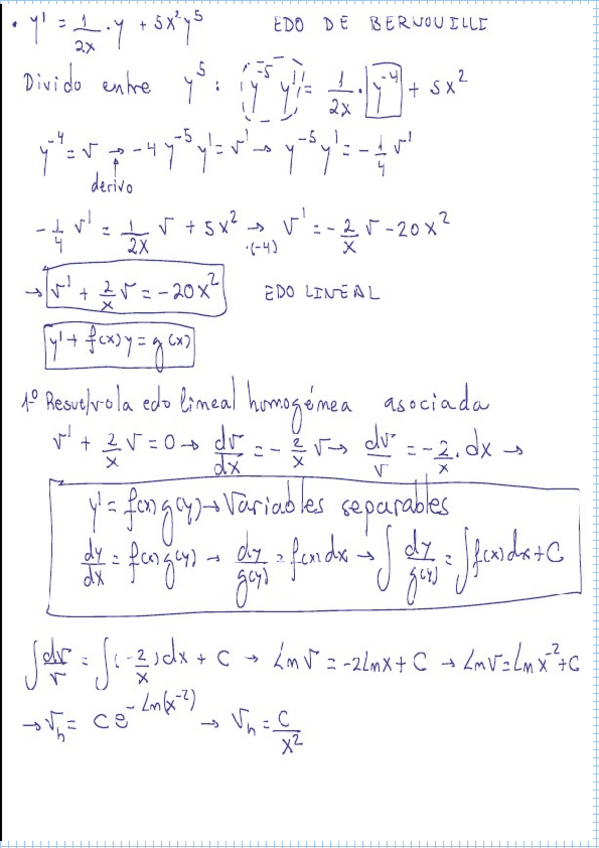 • y' = 1/2x · y + 5x²y⁵ EDO DE BERNOUILLI
Divido entre y⁵ : y⁻⁵ y' = 1/2x · y⁻⁴ + 5x²
y⁻⁴ = v → -4 y⁻⁵ y' = v' → y⁻⁵ y' = -1/4 v'
derivo
-1/4 v' = 1/2x v + 5x² → v' = -2/x v - 20x²
·(-4)
→ v' + 2/x v = -20x² EDO LINEAL
y' + f(x) y = g(x)
1º Resuelvo la edo lineal homogénea asociada
v' + 2/x v = 0 → dv/dx = -2/x v → dv/v = -2/x · dx →
y' = f(x) g(y) → Variables separables
dy/dx = f(x) g(y) → dy/g(y) = f(x) dx → ∫ dy/g(y) = ∫ f(x) dx + C
∫ dv/v = ∫ (-2/x) dx + C → Ln v = -2Ln x + C → Ln v = Ln x⁻² + C
→ v_h = C e^(-Ln(x⁻²)) → v_h = C/x²